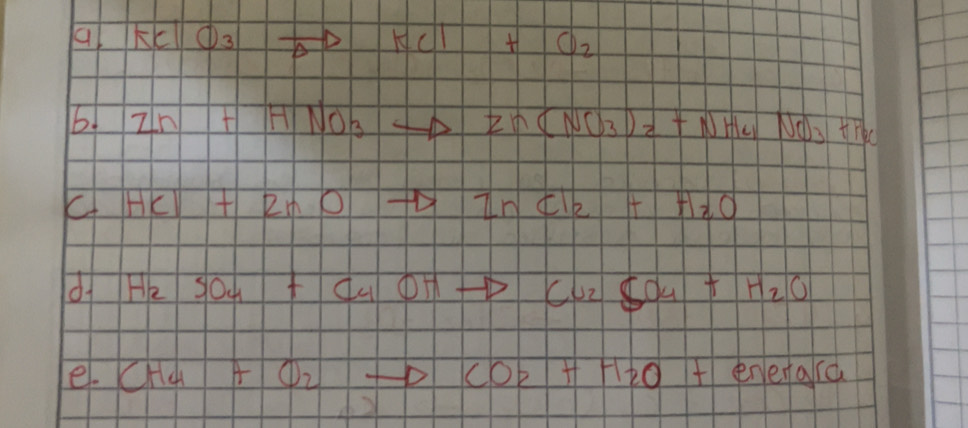 a. KClO3 ⇒ KCl + O2
b. Zn + HNO3 → Zn(NO3)2 + NH4 NO3 +
c. HCl + ZnO → ZnCl2 + H2O
d. H2 SO4 + Cu OH → Cu2 SO4 + H2O
e. CH4 + O2 → CO2 + H2O + energía